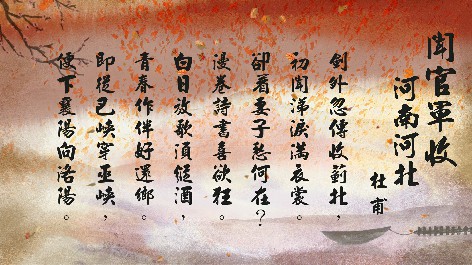 聞官軍收
河南河北
杜甫
劍外忽傳收薊北，
初聞涕淚滿衣裳。
卻看妻子愁何在？
漫卷詩書喜欲狂。
白日放歌須縱酒，
青春作伴好還鄉。
即從巴峽穿巫峽，
便下襄陽向洛陽。